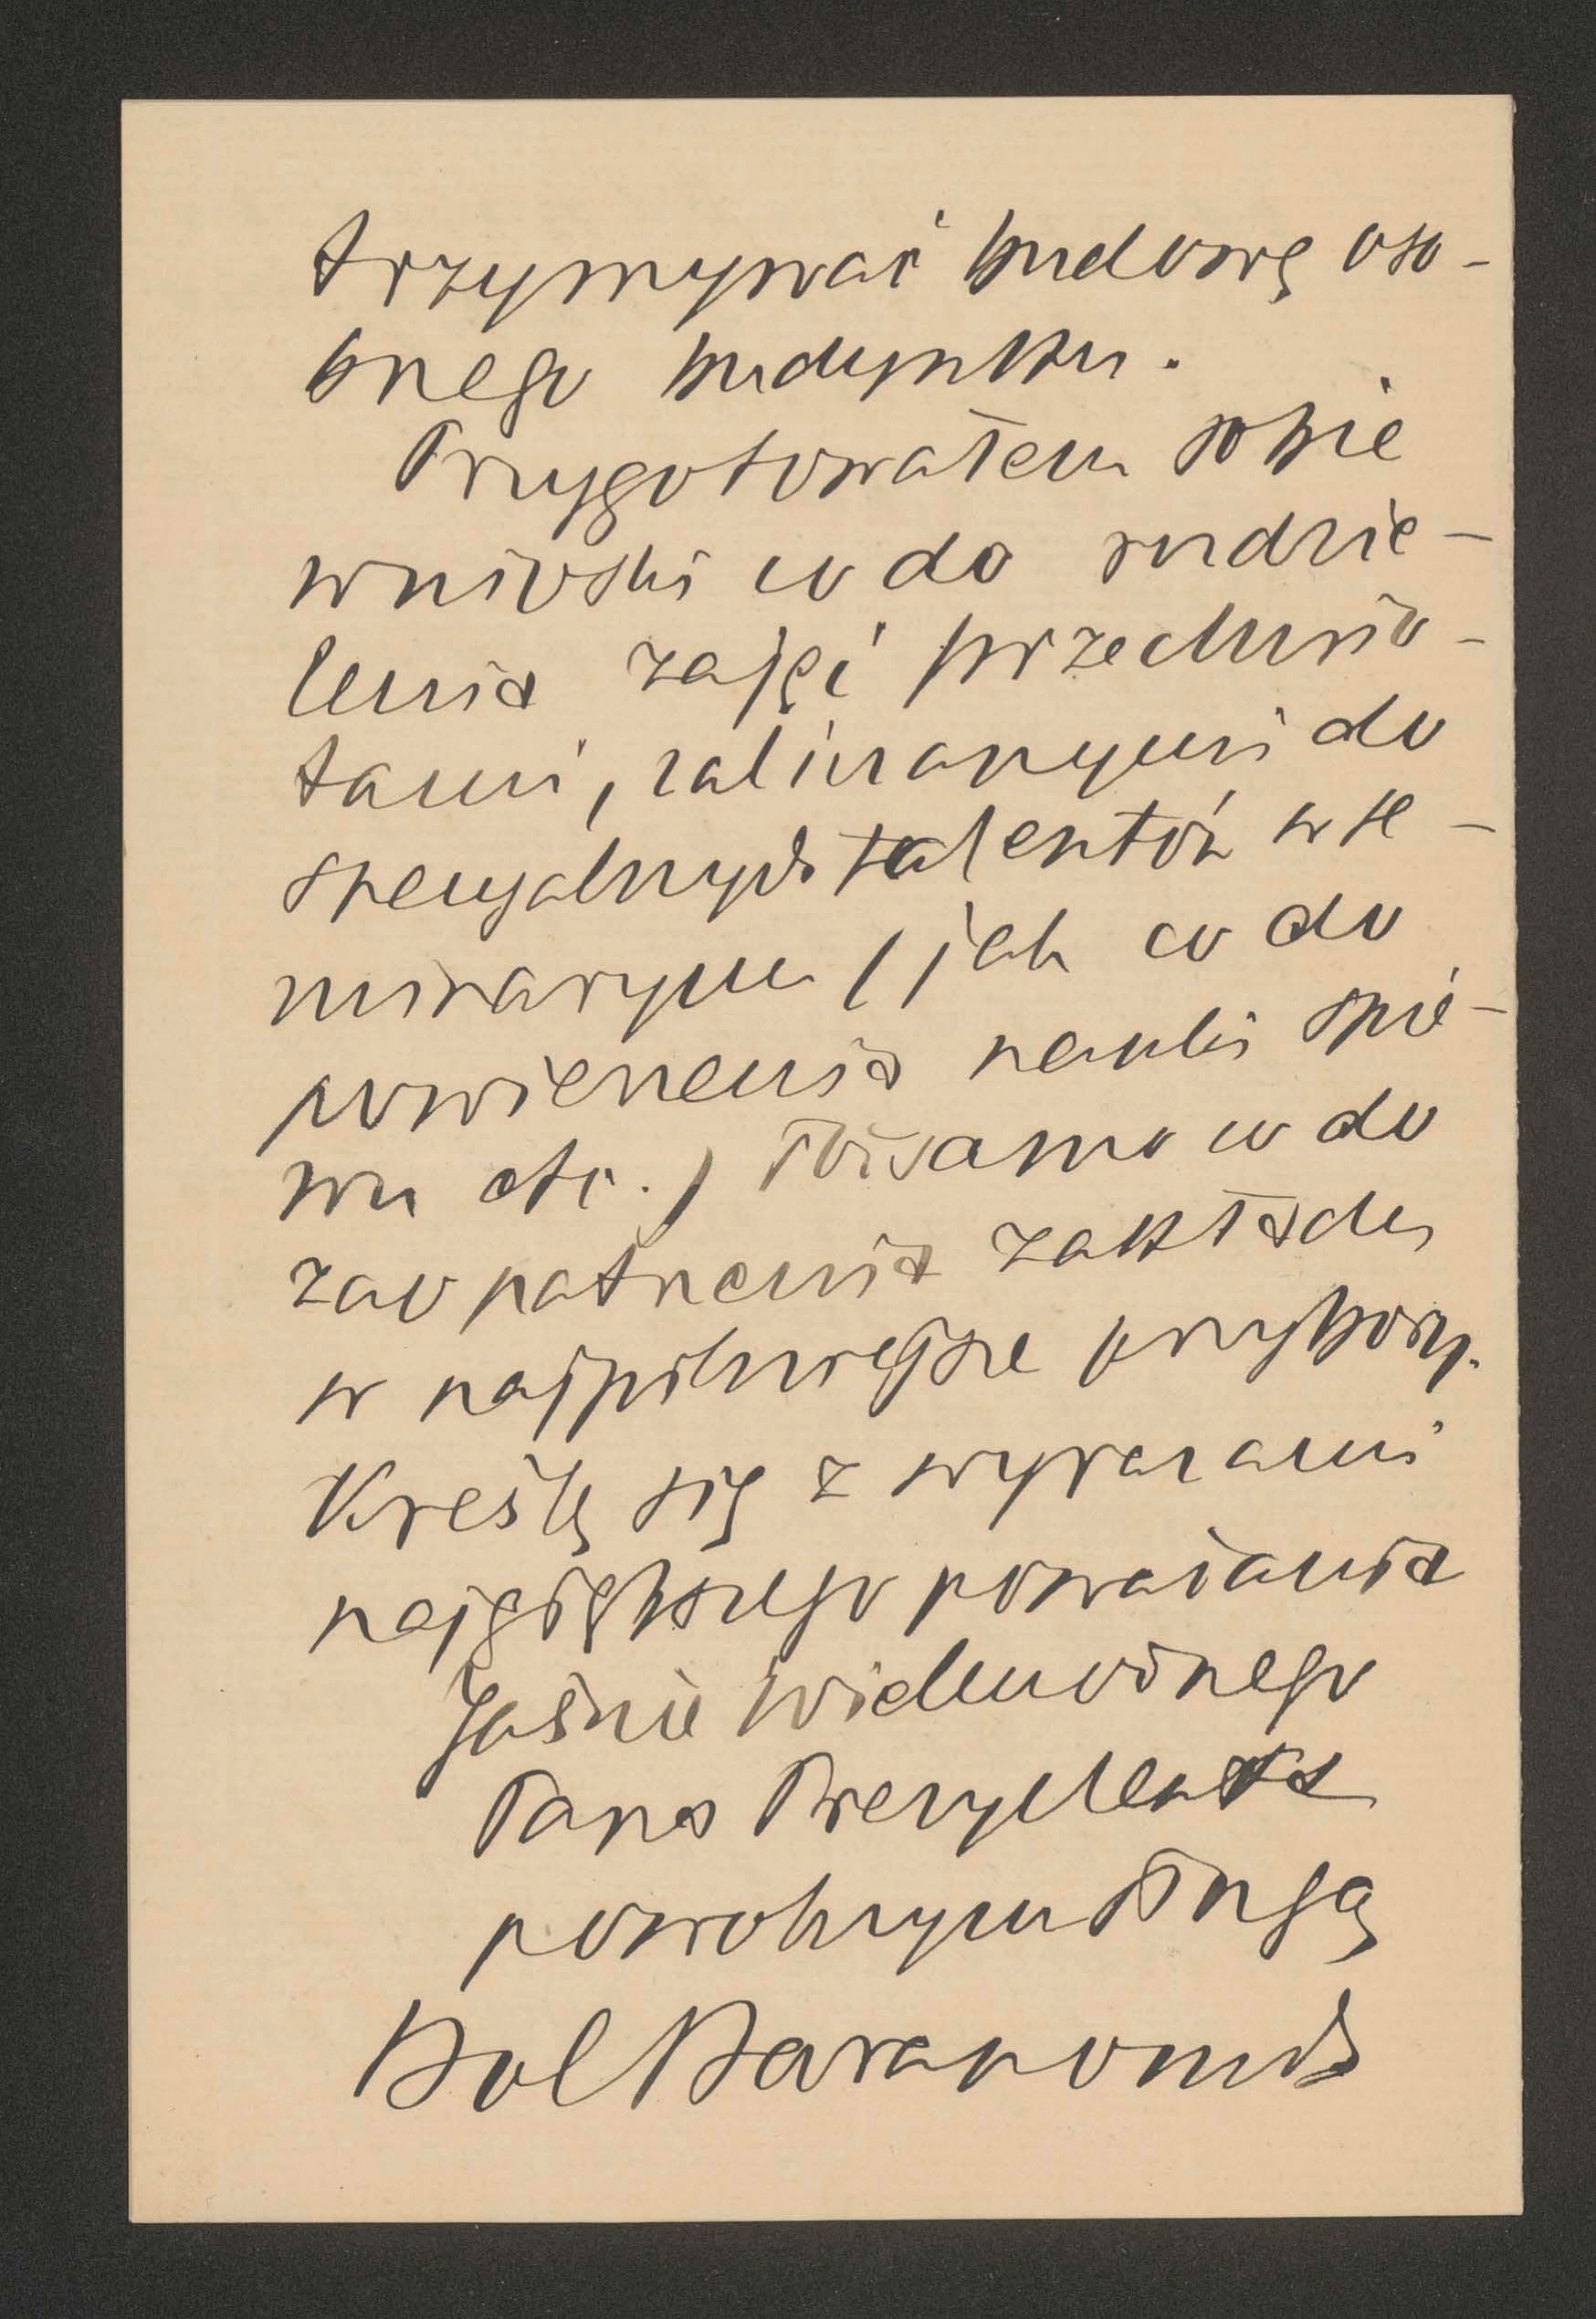 trzymywać budowę oso-
bnego budynku.
Przygotowałem sobie
wnioski co do rozdzie-
lenia zajęć przedmio-
tami, zaliczanymi do
specyalnych talentów w se-
minaryum (jak co do
powierzenia nauki śpie-
wu etc.) Tożsamo co do
zaopatrzenia zakładu
w najpilniejsze przybory.
Kreślę się z wyrazami
najgłębszego poważania
Jaśnie Wielmożnego
Pana Prezydenta
powolnym sługą
Bol Baranowski